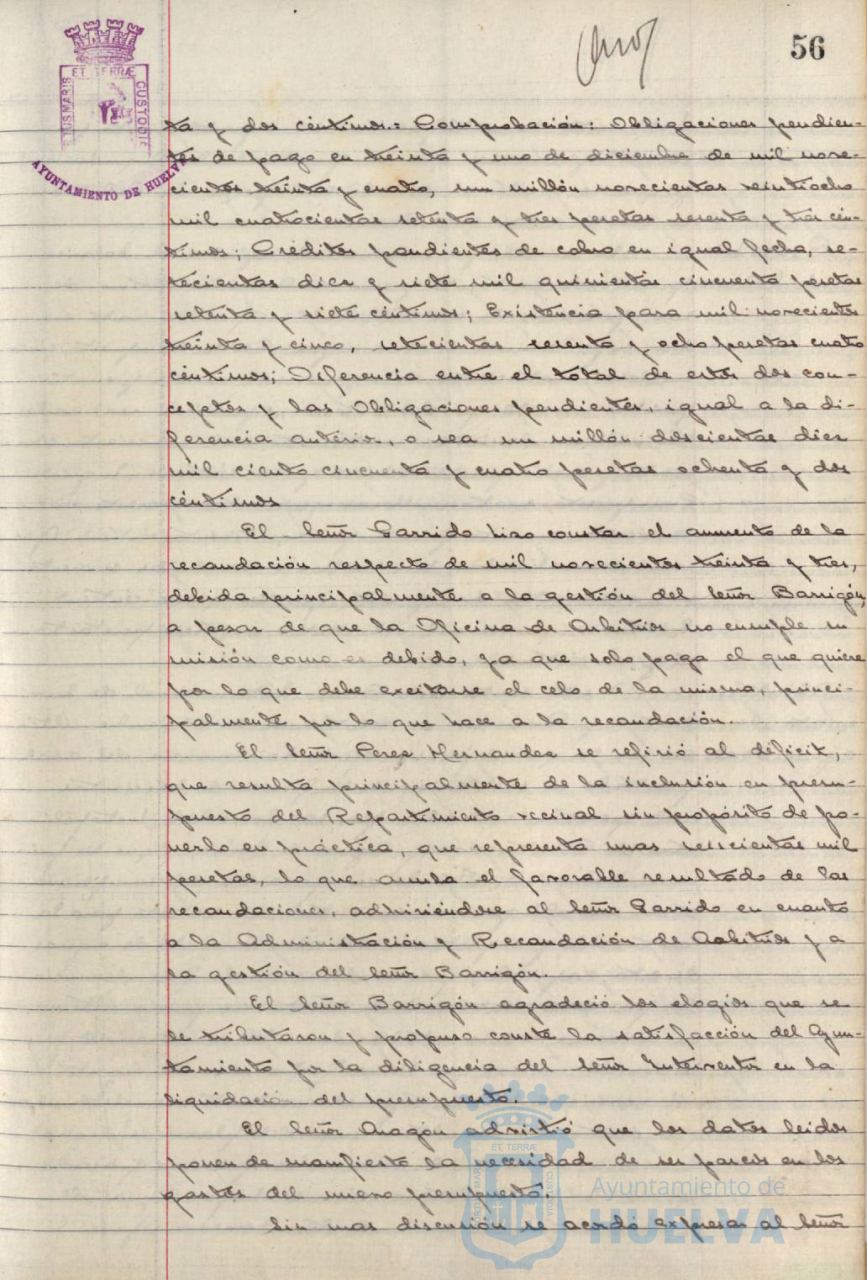 56
ET TERRÆ
CUSTODITE
AYUNTAMIENTO DE HUELVA
ta y dos céntimos.= Comprobación: Obligaciones pendien-
tes de pago en treinta y uno de diciembre de mil nove-
cientos treinta y cuatro, un millón novecientas veintiocho
mil cuatrocientas setenta y tres pesetas sesenta y tres cén-
timos; Créditos pendientes de cobro en igual fecha, se-
tecientas diez y siete mil quinientas cincuenta pesetas
setenta y siete céntimos; Existencia para mil novecientos
treinta y cinco, setecientas sesenta y ocho pesetas cuatro
céntimos; Diferencia entre el total de estos dos con-
ceptos y las Obligaciones pendientes, igual a la di-
ferencia anterior, o sea un millón doscientas diez
mil ciento cincuenta y cuatro pesetas ochenta y dos
céntimos
El Señor Garrido hizo constar el aumento de la
recaudación respecto de mil novecientos treinta y tres,
debida principalmente a la gestión del Señor Barrigón,
a pesar de que la Oficina de Arbitrios no cumple su
misión como es debido, ya que solo paga el que quiere
por lo que debe excitarse el celo de la misma, princi-
palmente por lo que hace a la recaudación.
El Señor Perez Hernandez se refirió al déficit,
que resulta principalmente de la inclusión en presu-
puesto del Repartimiento vecinal sin propósito de po-
nerlo en práctica, que representa unas seiscientas mil
pesetas, lo que anula el favorable resultado de las
recaudaciones, adhiriéndose al Señor Garrido en cuanto
a la Administración y Recaudación de Arbitrios y a
la gestión del Señor Barrigón.
El Señor Barrigón agradeció los elogios que se
le tributaron y propuso conste la satisfacción del Ayun-
tamiento por la diligencia del Señor Interventor en la
liquidación del presupuesto.
El Señor Aragón advirtió que los datos leidos
ponen de manifiesto la necesidad de ser parcos en los
gastos del nuevo presupuesto.
Sin mas discusión se acordó expresar al Señor
Ayuntamiento de
HUELVA